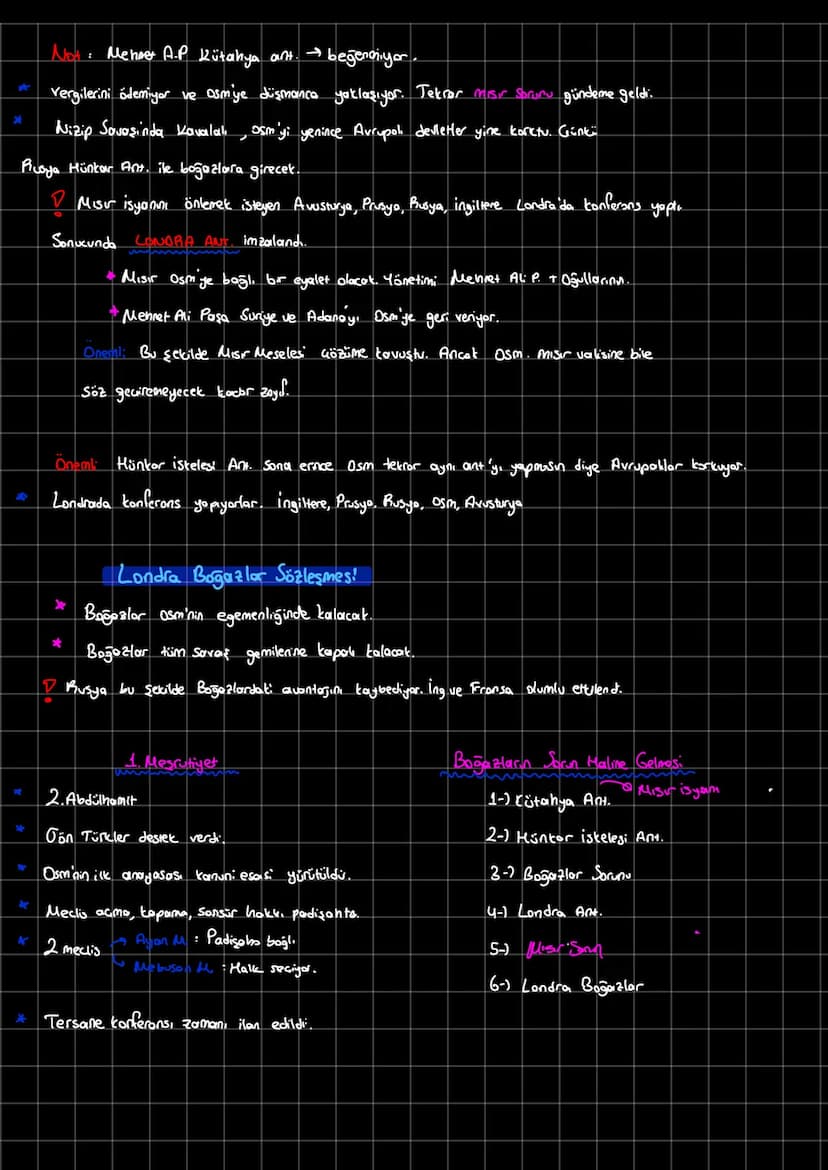 Not : Mehmet A.P Kütahya ant. → beğenmiyor.
* Vergilerini ödemiyor ve Osm'ye düşmanca yaklaşıyor. Tekrar mısır sorunu gündeme geldi.
* Nizip Savaşında Kavalalı, Osm'yi yenince Avrupalı devletler yine korktu. Çünkü
Rusya Hünkar Ant. ile boğazlara girecek.
! Mısır isyanını önlemek isteyen Avusturya, Prusya, Rusya, ingiltere Londra'da konferans yaptı.
Sonucunda LONDRA ANT. imzalandı.
* Mısır Osm'ye bağlı bir eyalet olacak. Yönetimi Mehmet Ali P. + Oğullarının.
* Mehmet Ali Paşa Suriye ve Adana'yı Osm'ye geri veriyor.
Önemli: Bu şekilde Mısır Meselesi çözüme kavuştu. Ancak Osm. mısır valisine bile
söz geçiremeyecek kadar zayıf.
Önemli: Hünkar iskelesi Ant. sona erince Osm tekrar aynı ant'yı yapmasın diye Avrupalılar korkuyor.
* Londrada konferans yapıyorlar. İngiltere, Prusya, Rusya, Osm, Avusturya
Londra Boğazlar Sözleşmesi
* Boğazlar Osm'nin egemenliğinde kalacak.
* Boğazlar tüm savaş gemilerine kapalı kalacak.
! Rusya bu şekilde Boğazlardaki avantajını kaybediyor. İng ve Fransa olumlu etkilendi.
1. Meşrutiyet
* 2. Abdülhamit
* Jön Türkler destek verdi.
* Osm'nin ilk anayasası kanuni esasi yürütüldü.
* Meclis açma, kapama, sansür hakkı padişahta.
* 2 meclis → Ayan M : Padişaha bağlı
→ Mebusan M : Halk seçiyor.
* Tersane konferansı zamanı ilan edildi.
Boğazların Sorun Haline Gelmesi
1-) Kütahya Ant. → Mısır isyanı
2-) Hünkar iskelesi Ant.
3-) Boğazlar Sorunu
4-) Londra Ant.
5-) Mısır Sorun
6-) Londra Boğazlar